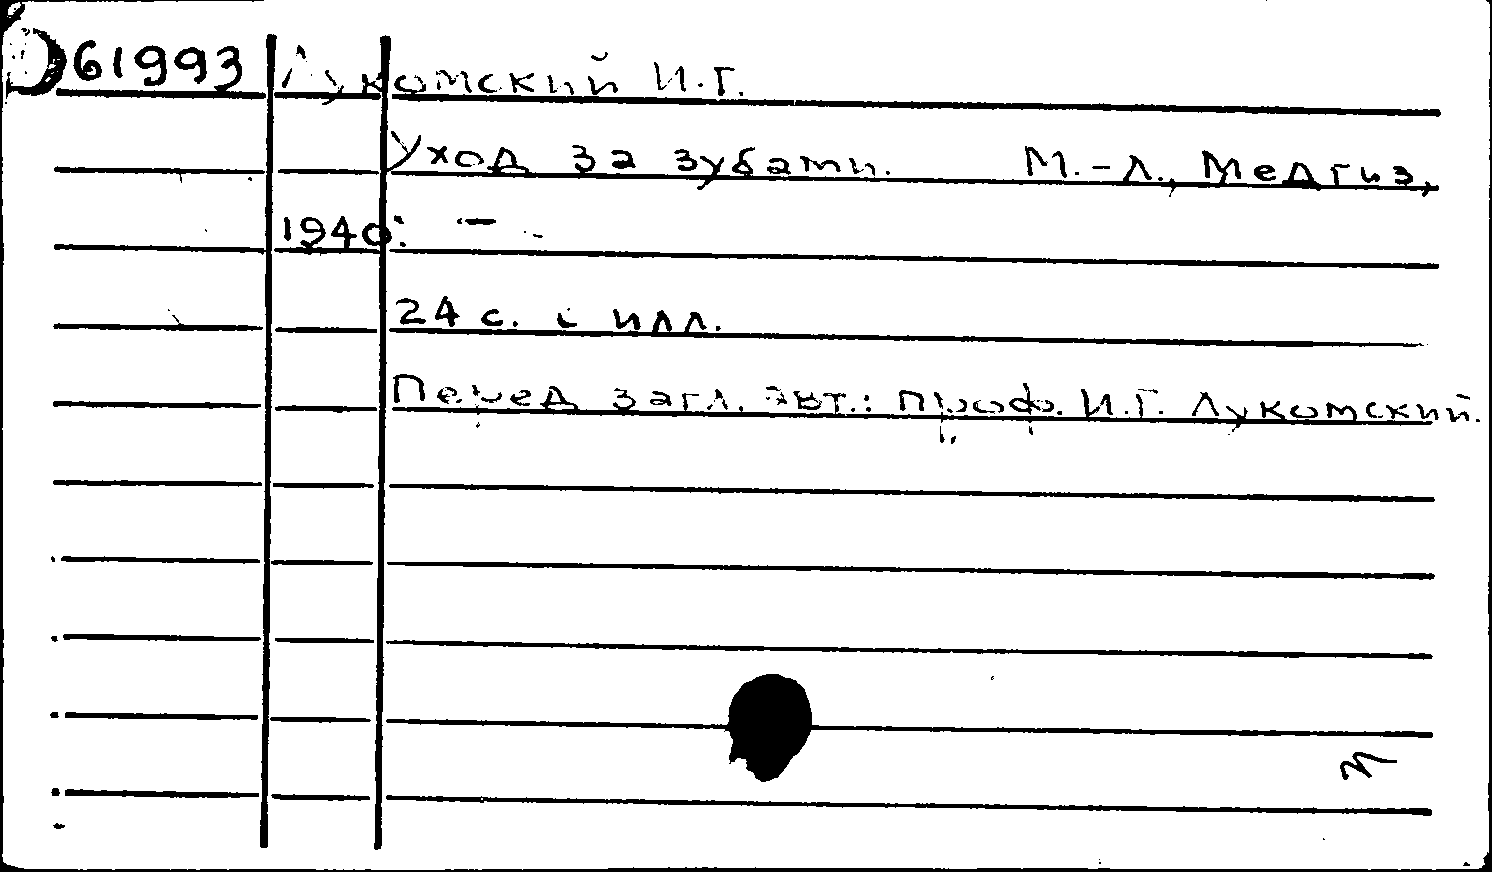 61993 Лукомский И.Г.
Уход за зубами. М.-Л., Медгиз,
1940.
24 с. с илл.
Перед загл. авт.: проф. И.Г. Лукомский.